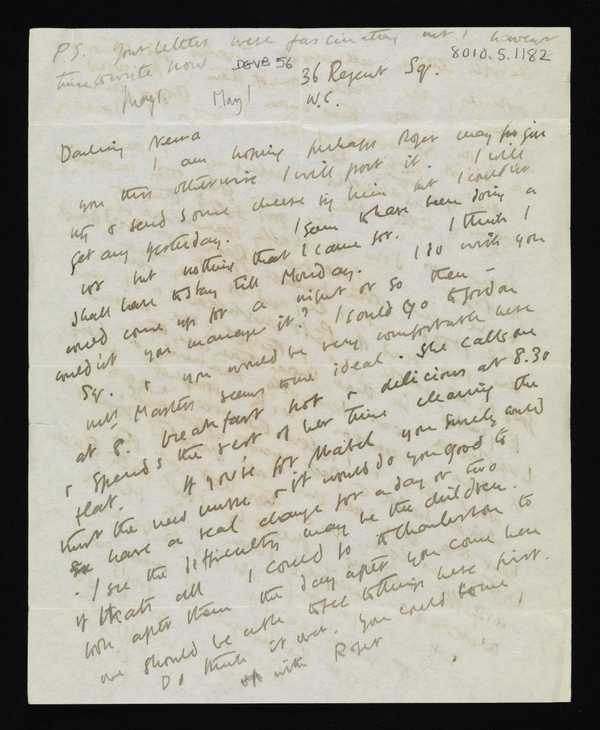 PS. Your letters were fascinating but I haven't
time to write now
DGVB 56
8010.5.1182
36 Regent Sq.
W.C.
May 1. May 1
Darling Nessa
I am hoping perhaps Roger may give
you this otherwise I will post it. I will
try & send some cheese by him but I couldn't
get any yesterday. I seem to have been doing a
lot but nothing that I came for. I think I
shall have to stay till Monday. I do wish you
would come up for a night or so then –
couldn't you manage it? I could go to Gordon
Sq. & you would be very comfortable here
Mrs Masters seems to me ideal. She calls me
at 8. breakfast hot & delicious at 8.30
& spends the rest of her time cleaning the
flat. If you're for Mabel you surely could
trust the new nurse & it would do you good to
have a real change for a day or two
. I see the difficulty may be the children.
if thats all I could go to Charleston to
look after them the day after you come here
one should be able to see to things here first.
Do think it over. You could come
up with Roger